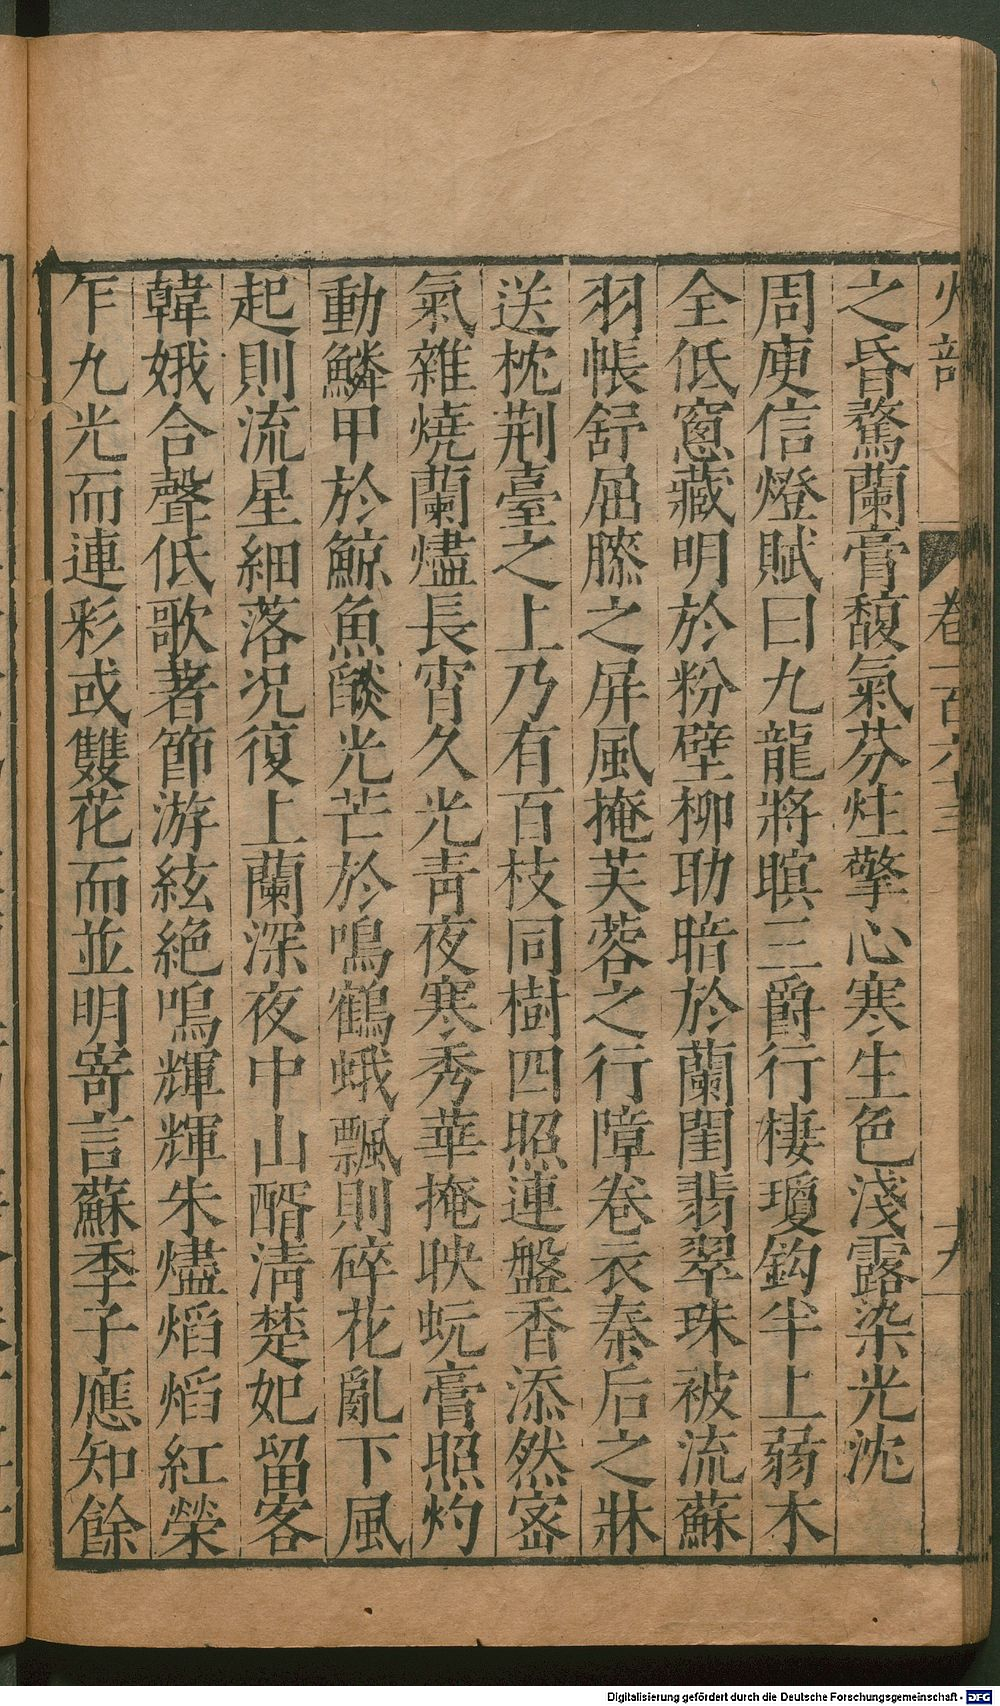 火部 卷一百六十三 十九
之昏鶩蘭膏馥氣芬炷擎心寒生色淺露染光沈
周庾信燈賦曰九龍將暝三爵行棲瓊鈎半上弱木
全低窻藏明於粉壁柳助暗於蘭閨翡翠珠被流蘇
羽帳舒屈膝之屏風掩芙蓉之行障卷衣秦后之牀
送枕荆臺之上乃有百枝同樹四照連盤香添然宻
氣雜燒蘭燼長宵久光青夜寒秀華掩映蚖膏照灼
動鱗甲於鯨魚䤋光芒於鳴鶴蛾飄則碎花亂下風
起則流星細落況復上蘭深夜中山醑清楚妃留客
韓娥合聲低歌著節游絃絕鳴輝輝朱燼焰焰紅榮
乍九光而連彩或雙花而並明寄言蘇季子應知餘
Digitalisierung gefördert durch die Deutsche Forschungsgemeinschaft - DFG